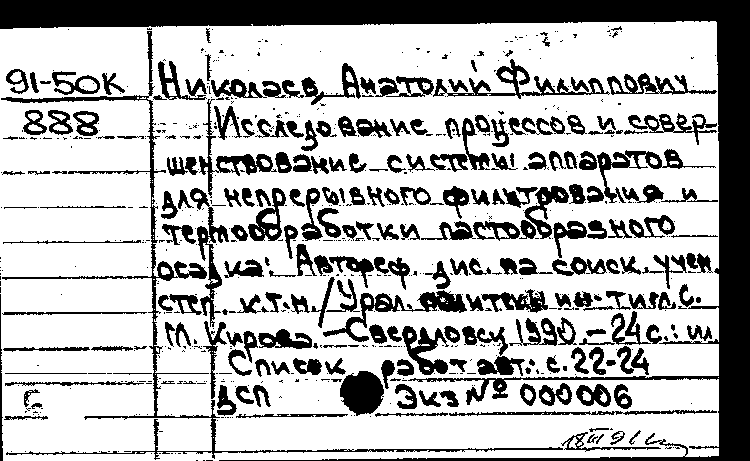 91-50К Николаев, Анатолий Филиппович
888 Исследование процессов и совер-
шенствование системы аппаратов
для непрерывного фильтрования и
термообработки пастообразного
осадка: Автореф. дис. на соиск. учен.
степ. к.т.н. / Урал. политехн ин-т им. С.
М. Кирова. – Свердловск 1990. – 24 с.: ил.
Список работ авт.: с. 22-24
ДСП Экз № 000006
18 III 91